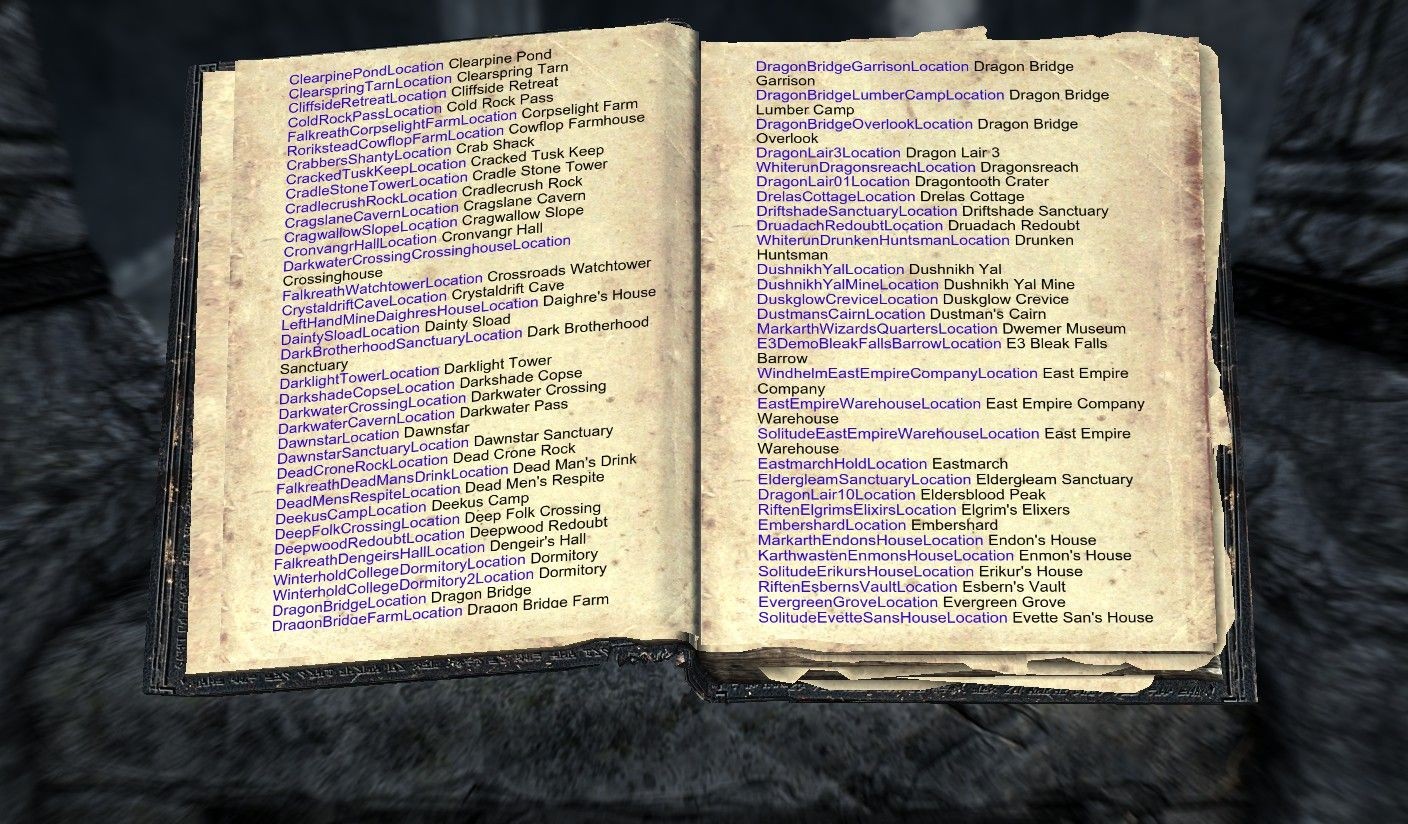 ClearpinePondLocation Clearpine Pond
ClearspringTarnLocation Clearspring Tarn
CliffsideRetreatLocation Cliffside Retreat
ColdRockPassLocation Cold Rock Pass
FalkreathCorpselightFarmLocation Corpselight Farm
RoriksteadCowflopFarmLocation Cowflop Farmhouse
CrabbersShantyLocation Crab Shack
CrackedTuskKeepLocation Cracked Tusk Keep
CradleStoneTowerLocation Cradle Stone Tower
CradlecrushRockLocation Cradlecrush Rock
CragslaneCavernLocation Cragslane Cavern
CragwallowSlopeLocation Cragwallow Slope
CronvangrHallLocation Cronvangr Hall
DarkwaterCrossingCrossinghouseLocation
Crossinghouse
FalkreathWatchtowerLocation Crossroads Watchtower
CrystaldriftCaveLocation Crystaldrift Cave
LeftHandMineDaighresHouseLocation Daighre's House
DaintySloadLocation Dainty Sload
DarkBrotherhoodSanctuaryLocation Dark Brotherhood
Sanctuary
DarklightTowerLocation Darklight Tower
DarkshadeCopseLocation Darkshade Copse
DarkwaterCrossingLocation Darkwater Crossing
DarkwaterCavernLocation Darkwater Pass
DawnstarLocation Dawnstar
DawnstarSanctuaryLocation Dawnstar Sanctuary
DeadCroneRockLocation Dead Crone Rock
FalkreathDeadMansDrinkLocation Dead Man's Drink
DeadMensRespiteLocation Dead Men's Respite
DeekusCampLocation Deekus Camp
DeepFolkCrossingLocation Deep Folk Crossing
DeepwoodRedoubtLocation Deepwood Redoubt
FalkreathDengeirsHallLocation Dengeir's Hall
WinterholdCollegeDormitoryLocation Dormitory
WinterholdCollegeDormitory2Location Dormitory
DragonBridgeLocation Dragon Bridge
DragonBridgeFarmLocation Dragon Bridge Farm
DragonBridgeGarrisonLocation Dragon Bridge
Garrison
DragonBridgeLumberCampLocation Dragon Bridge
Lumber Camp
DragonBridgeOverlookLocation Dragon Bridge
Overlook
DragonLair3Location Dragon Lair 3
WhiterunDragonsreachLocation Dragonsreach
DragonLair01Location Dragontooth Crater
DrelasCottageLocation Drelas Cottage
DriftshadeSanctuaryLocation Driftshade Sanctuary
DruadachRedoubtLocation Druadach Redoubt
WhiterunDrunkenHuntsmanLocation Drunken
Huntsman
DushnikhYalLocation Dushnikh Yal
DushnikhYalMineLocation Dushnikh Yal Mine
DuskglowCreviceLocation Duskglow Crevice
DustmansCairnLocation Dustman's Cairn
MarkarthWizardsQuartersLocation Dwemer Museum
E3DemoBleakFallsBarrowLocation E3 Bleak Falls
Barrow
WindhelmEastEmpireCompanyLocation East Empire
Company
EastEmpireWarehouseLocation East Empire Company
Warehouse
SolitudeEastEmpireWarehouseLocation East Empire
Warehouse
EastmarchHoldLocation Eastmarch
EldergleamSanctuaryLocation Eldergleam Sanctuary
DragonLair10Location Eldersblood Peak
RiftenElgrimsElixirsLocation Elgrim's Elixers
EmbershardLocation Embershard
MarkarthEndonsHouseLocation Endon's House
KarthwastenEnmonsHouseLocation Enmon's House
SolitudeErikursHouseLocation Erikur's House
RiftenEsbernsVaultLocation Esbern's Vault
EvergreenGroveLocation Evergreen Grove
SolitudeEvetteSansHouseLocation Evette San's House